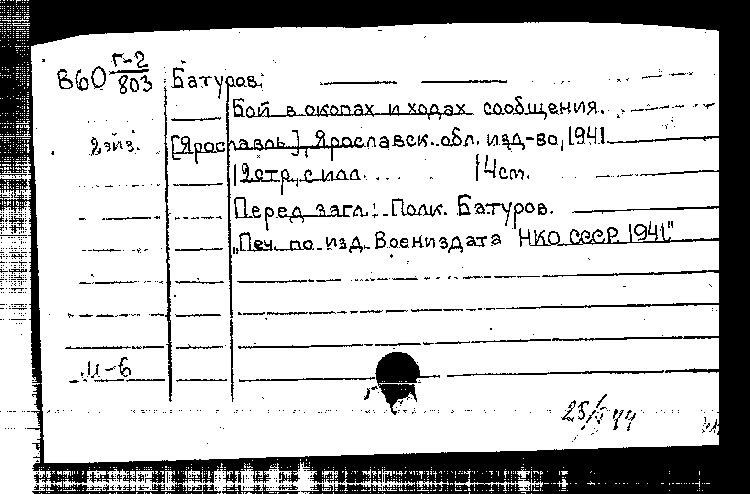 В60 Г-2/803 Батуров.
Бой в окопах и ходах сообщения.
2 экз. [Ярославль], Ярославск. обл. изд-во, 1941
12стр., с илл. 14см.
Перед загл.: Полк. Батуров.
„Печ. по изд. Воениздата НКО СССР 1941"
М-6